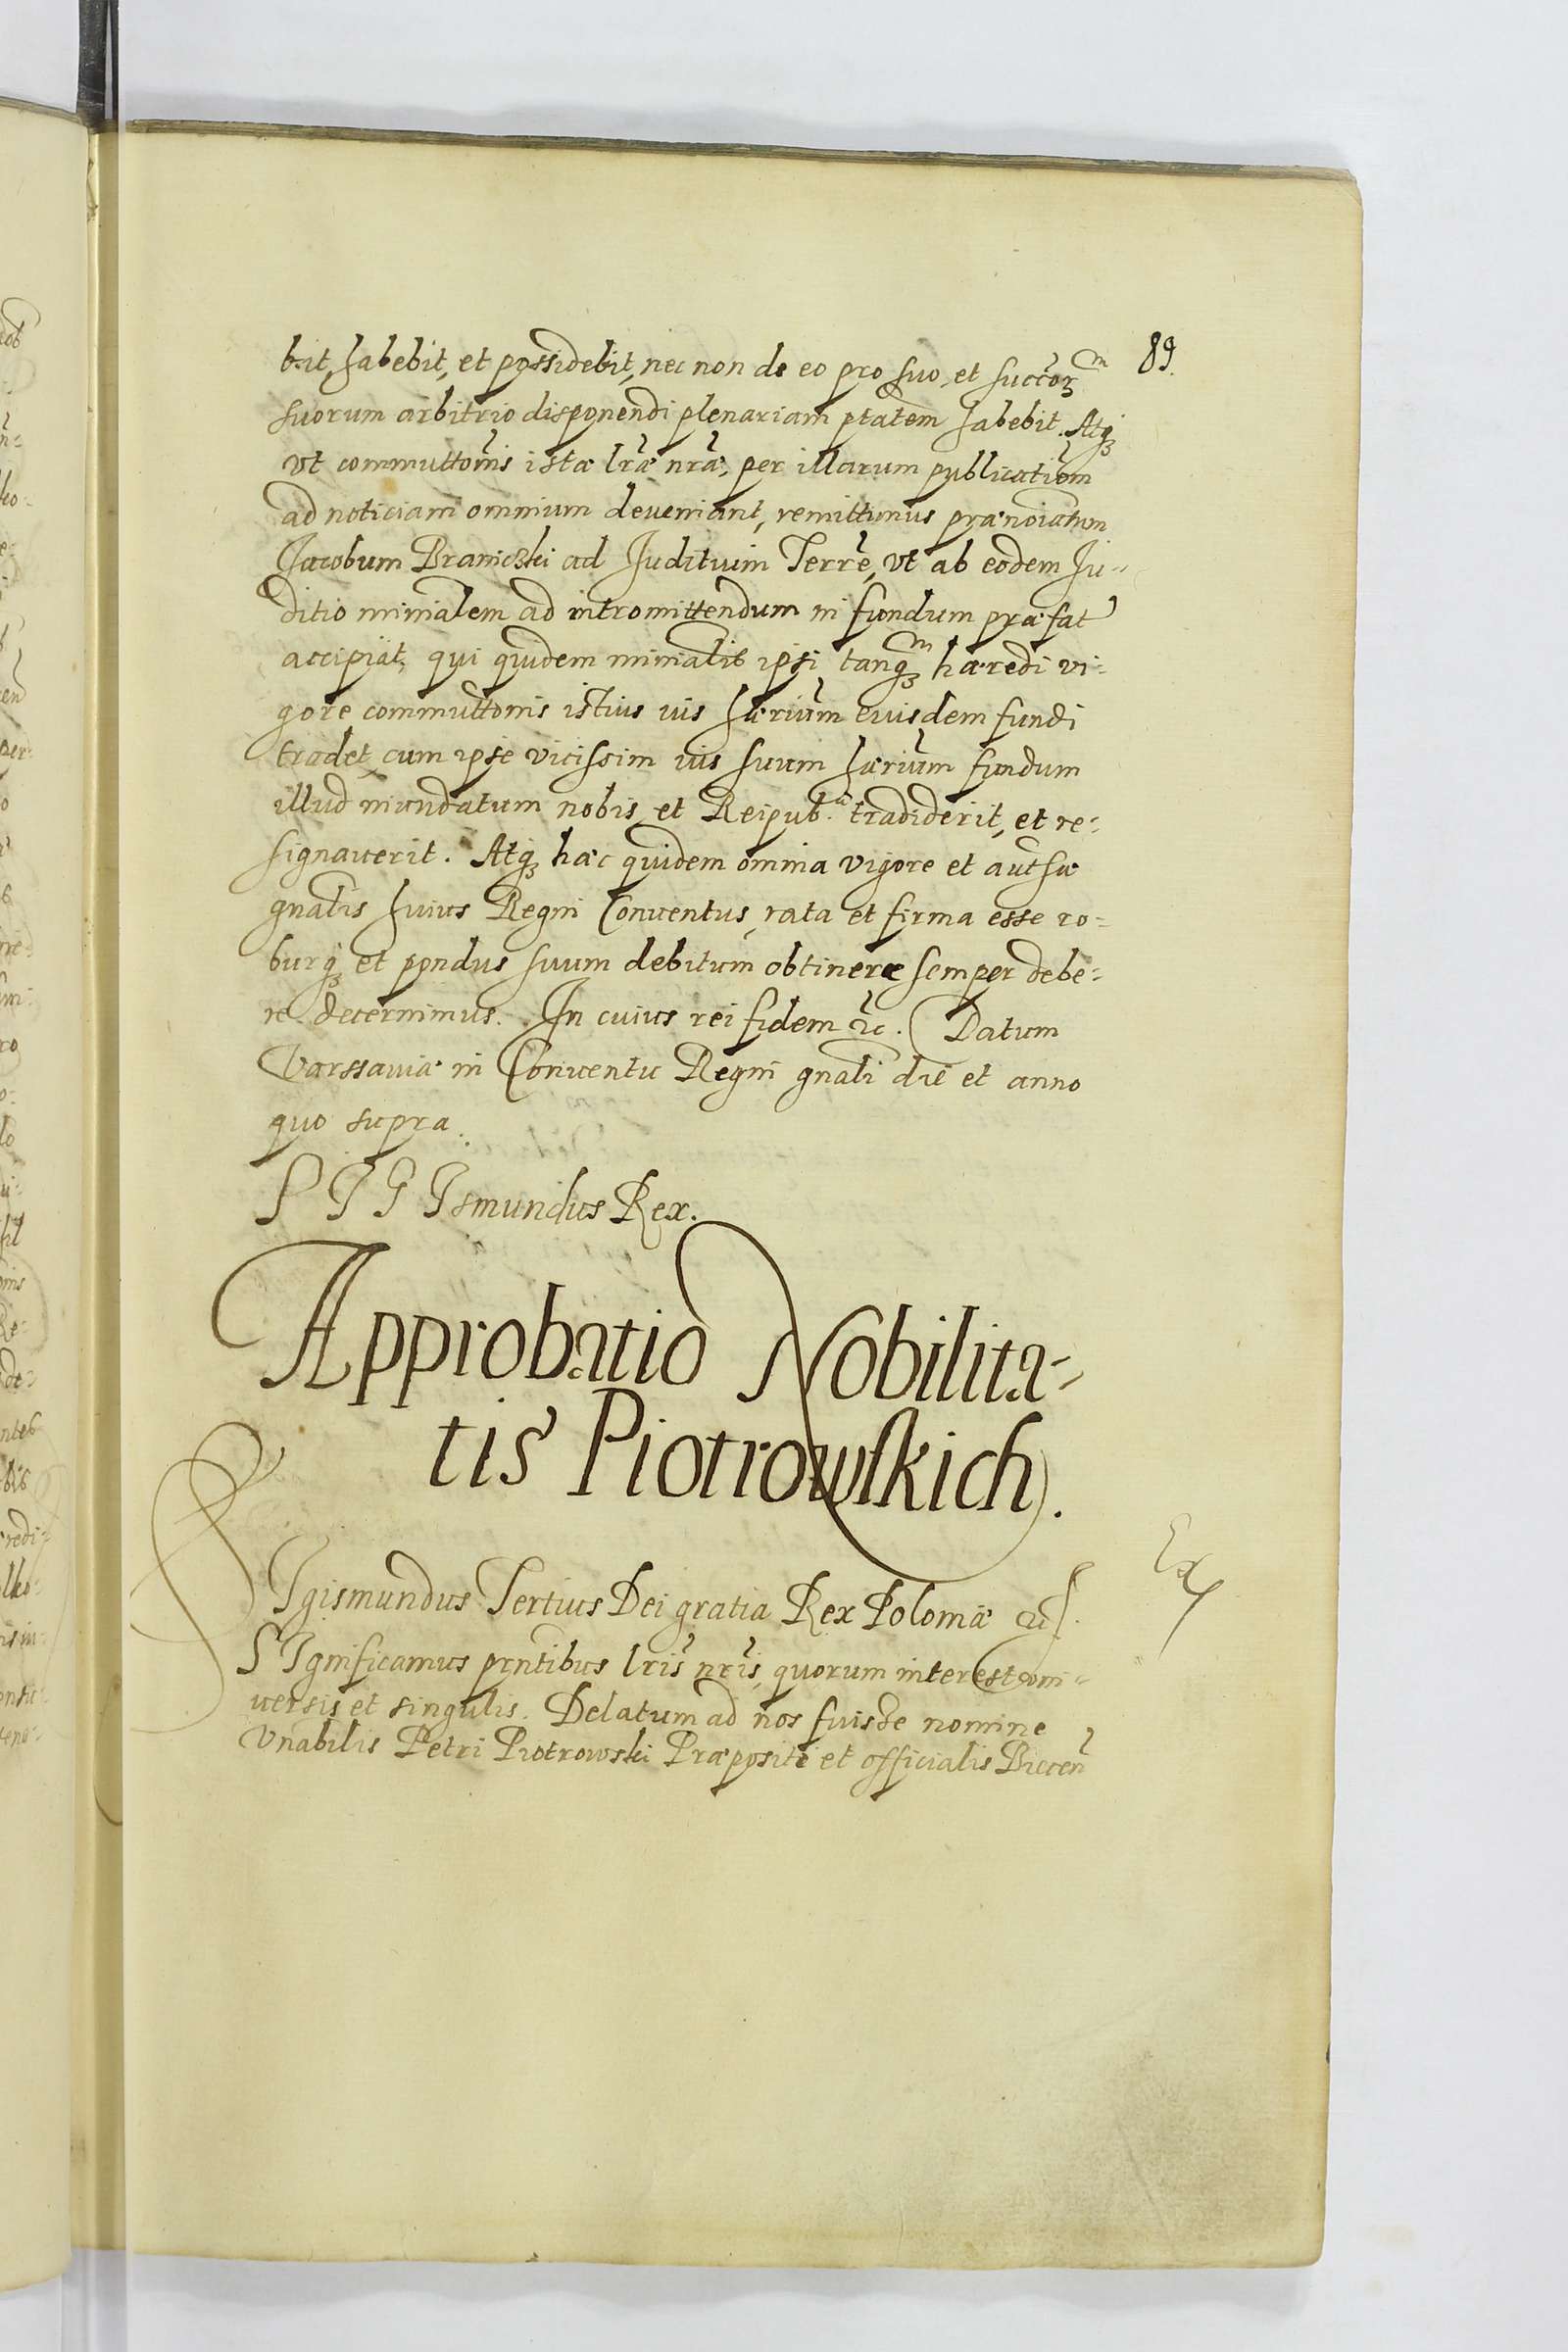 89.
bit, habebit, et possidebit, nec non de eo pro suo, et succorꝫ
suorum arbitrio disponendi plenariam ptatem habebit. Atqꝫ
vt commuttonis istæ lræ nræ, per illarum publicationem
ad noticiam omnium deueniant, remittimus prænoiatum
Jacobum Braniczki ad Juditium Terre, vt ab eodem Ju-
ditio minialem ad intromittendum in fundum præfat
accipiat, qui quidem minialis ipsi tanqꝫ hæredi vi-
gore commuttonis istius ius hærium eiusdem fundi
tradet, cum ipse vicissim ius suum hærium fundum
illud mundatum nobis et Reipub. tradiderit, et re-
signauerit. Atqꝫ hæc quidem omnia vigore et authæ
gnalis huius Regni Conuentus, rata et firma esse ro-
burqꝫ et pondus suum debitum obtinere semper debe-
re decernimus. In cuius rei fidem &c. Datum
Varssauiæ in Conuentu Regni gnali die et anno
quo supra.
SIGIsmundus Rex.
Approbatio Nobilita-
tis Piotrowskich.
SIgismundus Tertius Dei gratia Rex Poloniæ &c.
SIgnificamus pntibus lris nris, quorum interest vni-
uersis et singulis. Delatum ad nos fuisse nomine
Vnabilis Petri Piotrowski Præpositi et officialis Biecen